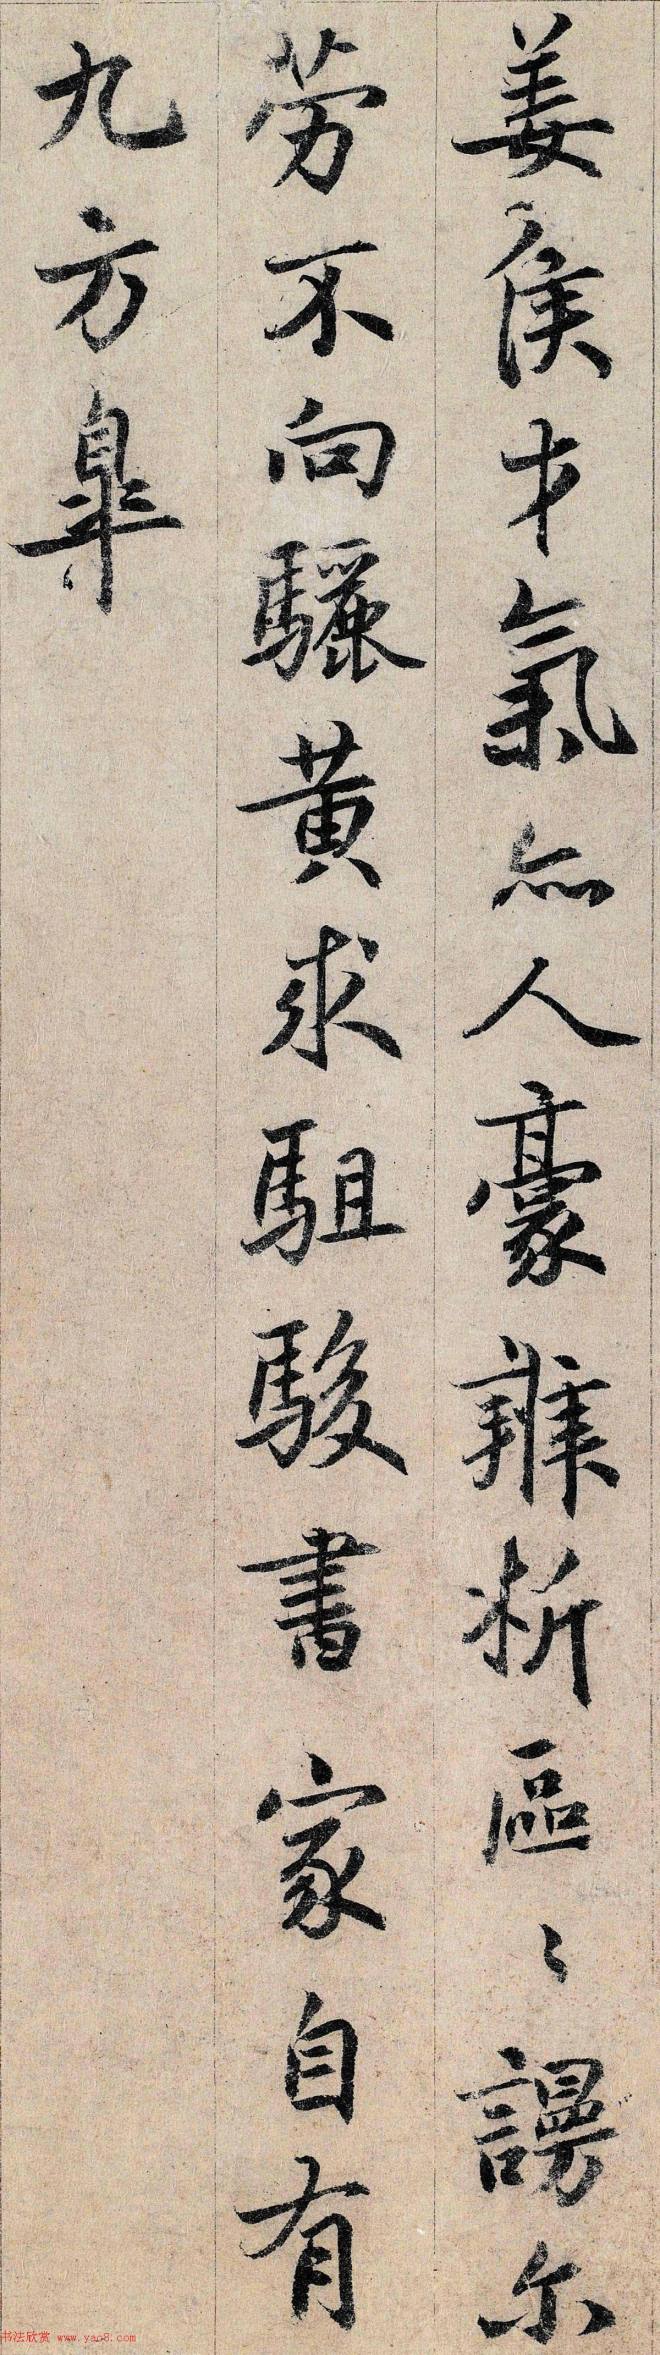 姜侯才氣亦人豪辨析區〻謾尔
勞不向驪黃求駔駿書家自有
九方皐
书法欣赏 www.yac8.com